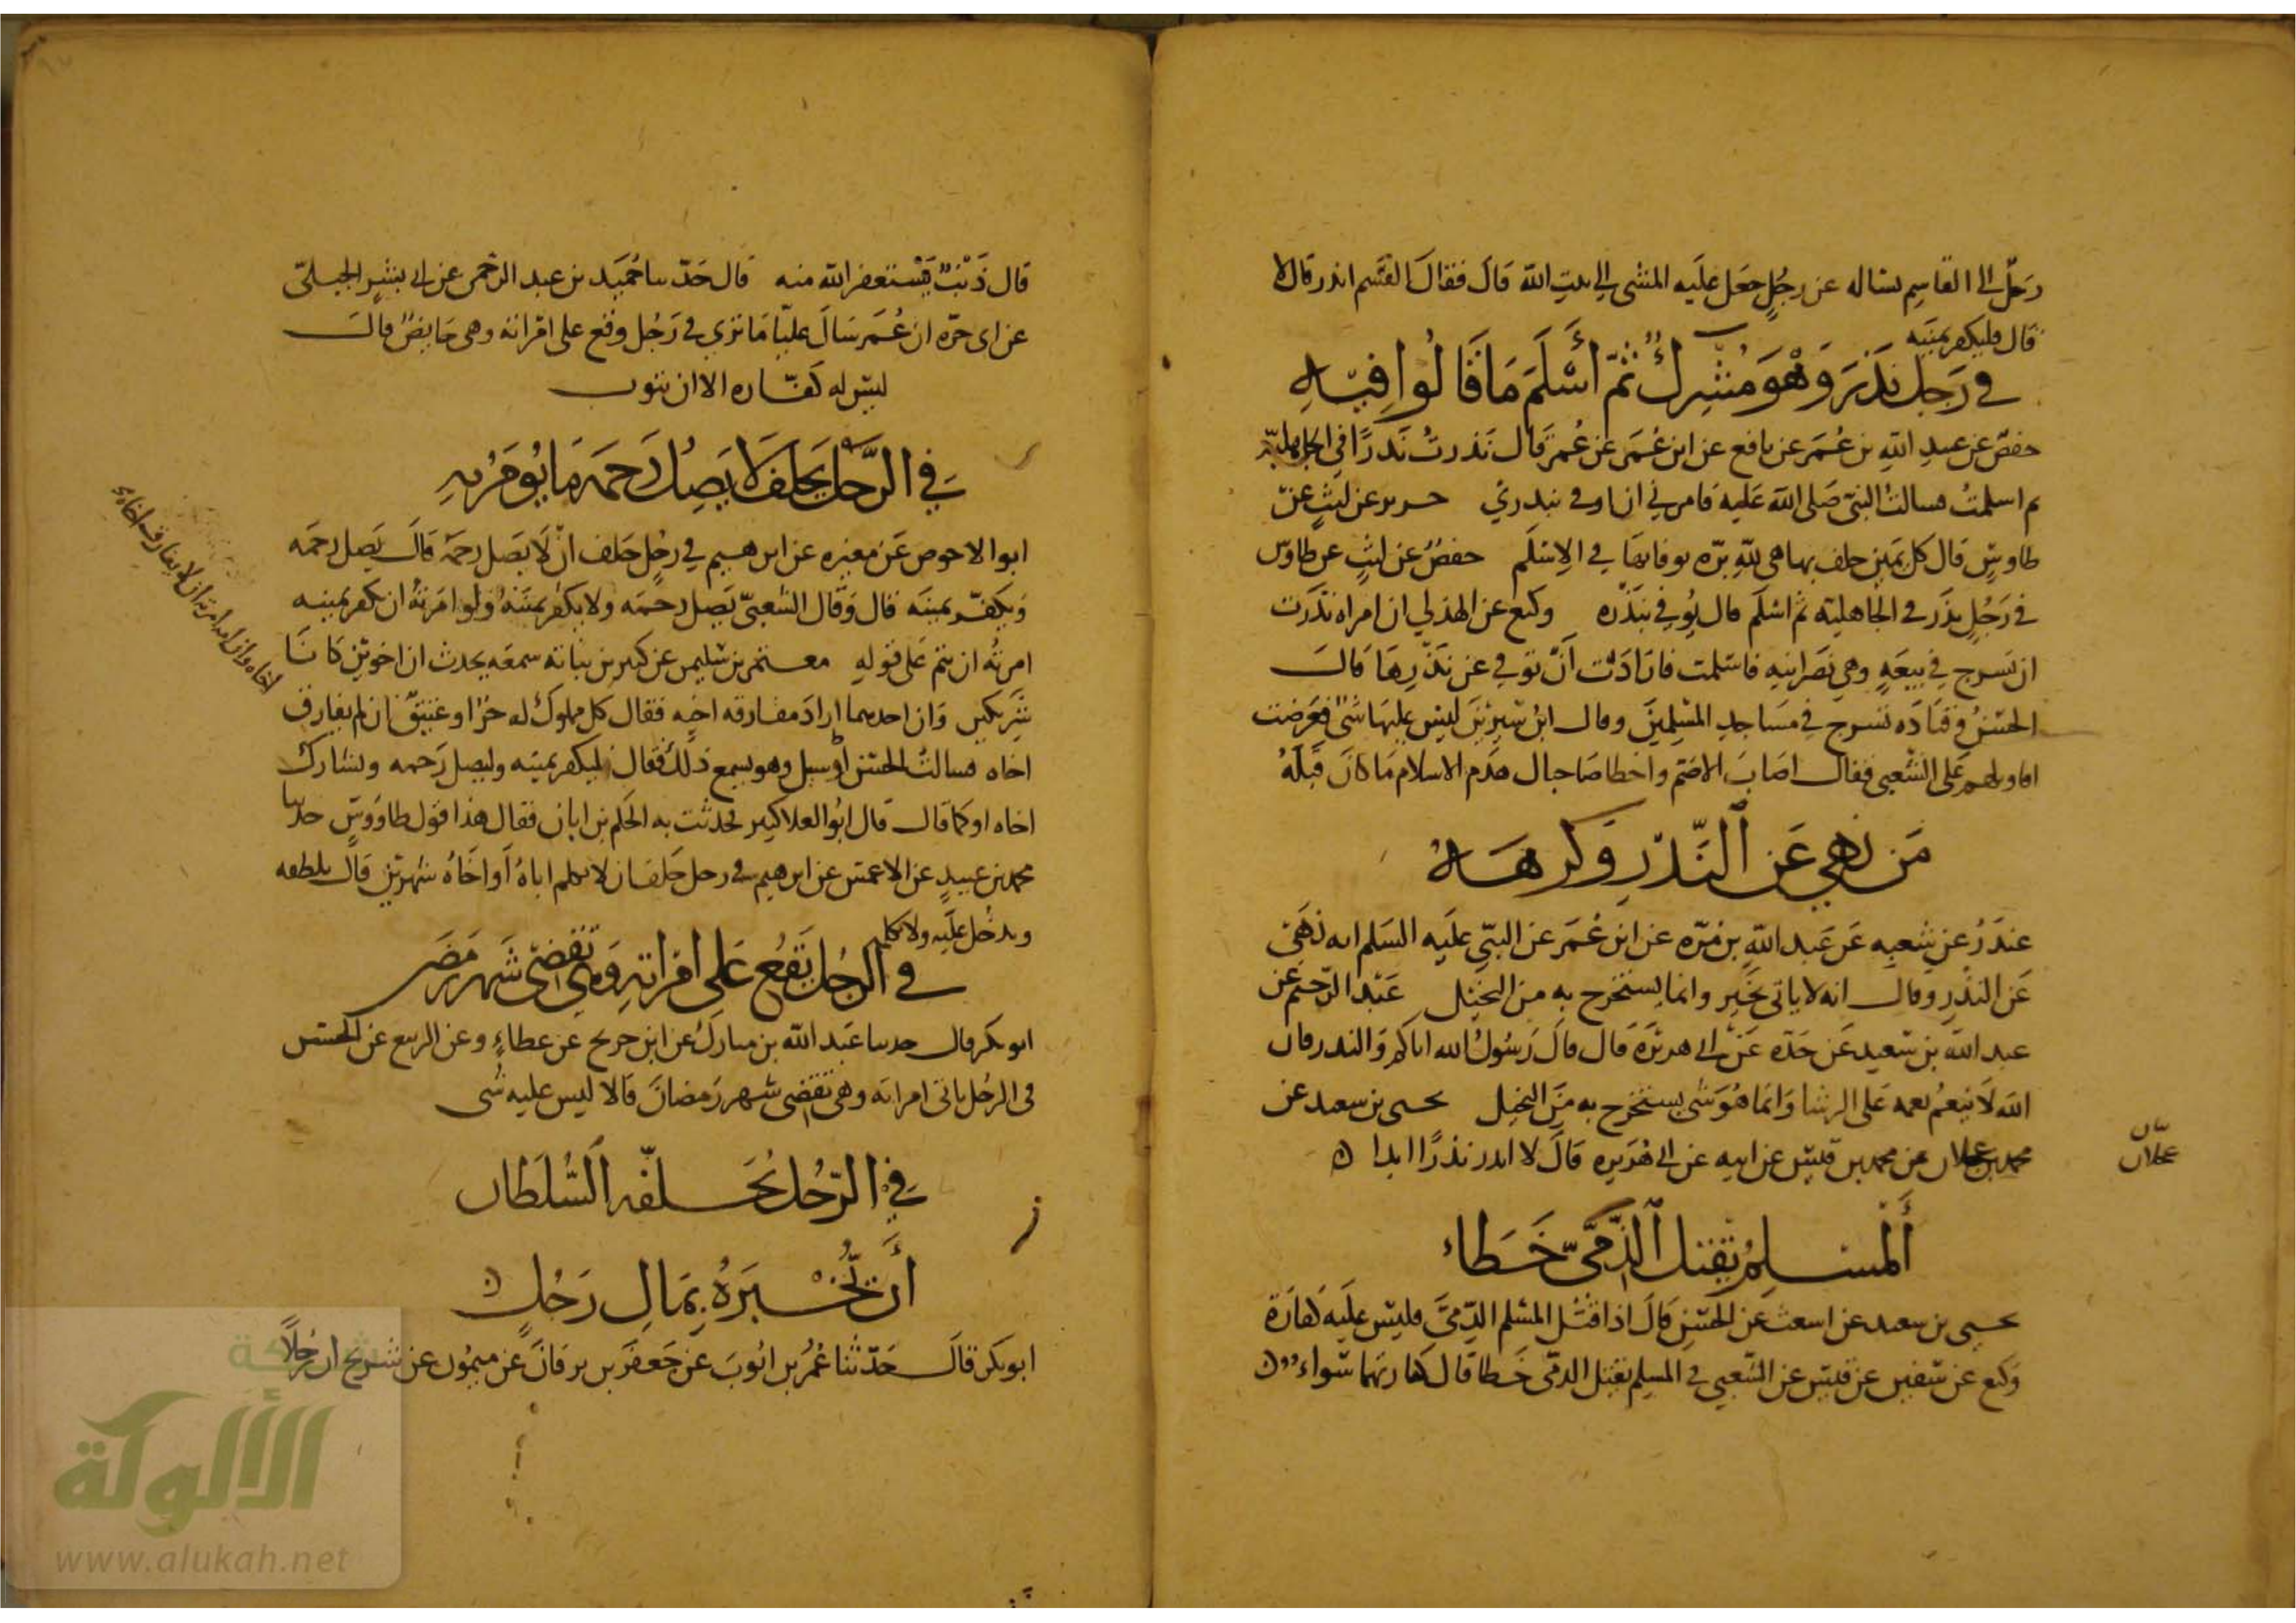 رجل الى القاسم يساله عن رجل جعل عليه المشي الى بيت الله قال فقال القسم انذر قال لا
قال فليكفر يمينه
في رَجل نَذَرَ وَهْوَ مُشْرِكٌ ثمّ أَسْلَمَ مَا قَالُوا فِيهِ
حفص عن عبيد الله بن عُمَر عن نافع عن ابن عُمَر عن عُمر قال نَذرتُ نَذرًا في الجاهلية
ثم اسلمتُ فسالت النبي صَلى الله عَليه فامرني ان اوفي بنذري جرير عن ليثٍ عن
طاوسٍ قال كل يمين حلف بها هي لله برّه يوفا بها في الاسلم حفصٌ عن ليثٍ عن طاوس
في رَجُلٍ نذَر في الجاهلية ثم اسلَم قال يُوفي بنَذْره وكيع عن الهذلي ان امراه نذَرَت
ان تسرج في بيعَةٍ وهي نصَرانيه فاسلمت فارَادَت أنْ توفي عن نَذْرِهَا قال
الحسَنُ وقتَادَه تسرج في مسَاجد المسلمين وقال ابنُ سيرين ليس عليها شئ فعَرضت
اقاويلهم عَلى الشعبي فقال اصَابَ الاصَمّ واخطا صَاحبال هَدَم الاسلام مَا كانَ قبْلَهُ
مَن نَهي عَن النَّذْرِ وَكرهَهُ
غندَرُ عن شعبه عَن عَبد الله بن مُرّه عن ابن عُمَر عن النبيّ عليه السَلم انه نَهَى
عَن النذْر وقال انه لا ياتي بخَيرٍ وانما يستخرج به من البخيل عَبْد الرحيم عن
عبد الله بن سعيد عَن جَدّه عَن ابي هريَرَة قال قالَ رَسُولُ الله اياكم وَالنذر فان
الله لَا ينعِم نعمه عَلى الرشا وَانما هُوَ شئ يستخرج به مِنَ البخيل يحيى بن سعيد عن
محمد بن عجلان عن محمد بن قيس عن ابيه عن ابي هُرَيره قالَ لا انذر نذرًا ابدا
عجلان
أَلمسلِمُ يَقتل الذِّمّيّ خَطاء
يحيى بن سعيد عن اشعث عن الحسَن قالَ اذا قتَل المسْلم الذِّميَّ فليس عليَه كفارَة
وَكيع عن سفين عن قيس عن الشعبي في المسلم يقتل الذمّى خَطا قال كفارتهما سَواء
قال ذَنْبٌ يَسْتغفر الله منه قال حَدّثنا حُميَد بن عبد الرحمن عن ابي بشرٍ الحلبيّ
عن ابي حرّه ان عُمَر سَالَ عليّا مَا تري في رَجُل وقع على امْراته وهي حَايضٌ قال
ليسَ له كَفّاره الا ان يتوب
فِي الرَّجل يَحلف لَا يَصِلُ رَحمَه مَا يُؤمَرُ به
ابو الاحوص عَن مغيره عن ابرهيم في رجُلٍ حَلف انْ لَا يَصل رحمَهُ قالَ يَصل رحمَه
وَيكفّر يمينَه قال وَقال الشعبيّ يَصل رحمَه ولا يكفر يمينَهُ وَلو امَرتُهُ ان يكفر يمينه
امرتُه ان يتم عَلى قوله معتمر بن سُليمن عن كثير بن نباته سمعَه يحدث ان اخوين كانَا
شرِيكين وَان احدهما ارادَ مفارقه اخيه فقال كل مملوك له حرّ او عتيقٌ ان لم يفارق
اخاه فسالتُ الحسَن او سيل وهو يسمع ذلك فقال ليكفر يمينه وليصل رَحمه وليشارك
اخاه او كما قال قال ابُو العلا كثير فحدثت به الحَكم بن ابان فقال هذا قول طاوُوسٍ حدثنا
محمد بن عبيدٍ عن الاعمش عن ابرهيم في رجل حَلفَ ان لا يكلم اباهُ أو اخَاهُ شهرَين قال يلطفه
ويدخُل عليَه ولا يكلم
اخاه وان امه امرته ان لا يفارق اخاه
في الرجُل يَقعُ عَلي امْراته وَهي تقضِى شَهر رَمضَان
ابو بكر قال حدثنا عَبد الله بن مبارك عن ابن جريج عن عطاءٍ وعن الربيع عن الحسَن
في الرجُل ياتي امراته وهي تقضِي شهر رَمضانَ قالا ليس عليه شى
فِي الرّجُل يُحَلِّفُه السُّلطَان
أَن يُخْبرَهُ بِمَالِ رَجُلٍ
ابو بكر قالَ حَدّثنا عُمَر بن ايّوبَ عن جَعفَر بن برقانَ عن ميمُون عن شريح ان رَجلًا
شبكة
الألوكة
www.alukah.net